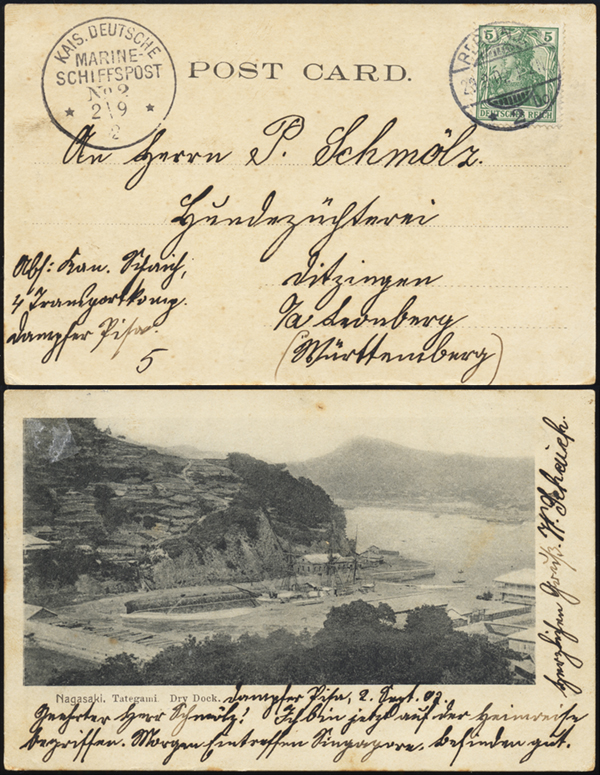 KAIS. DEUTSCHE
MARINE-
SCHIFFSPOST
No 2
* 2 9 *
2
POST CARD.
5 5
DEUTSCHES REICH
2
An Herrn P. Schmölz.
Hundezüchterei
Ditzingen
O/A Leonberg
(Württemberg)
Abs: Kan. Schaich,
4 Transportkomp.
Dampfer Pisa.
5
Herzlichen Gruß K. Schaich.
Nagasaki. Tategami Dry Dock. Dampfer Pisa, 2. Sept. 02.
Geehrter Herr Schmölz! Ich bin jetzt auf der Heimreise
begriffen. Morgen Eintreffen Singapore. Befinden gut.